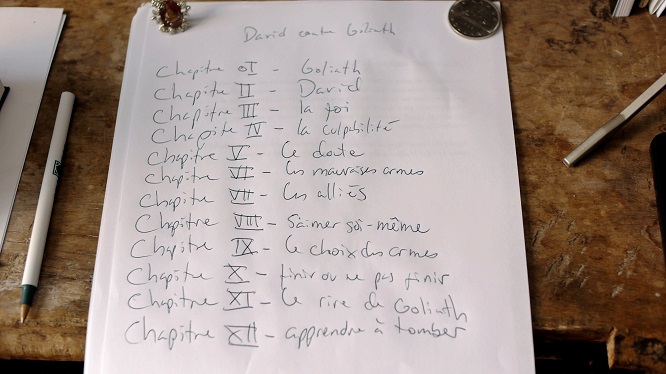 David contre Goliath
Chapitre I - Goliath
Chapitre II - David
Chapitre III - la foi
Chapitre IV - la culpabilité
Chapitre V - Le doute
Chapitre VI - Les mauvaises armes
Chapitre VII - Les alliés
Chapitre VIII - S'aimer soi-même
Chapitre IX - Le choix des armes
Chapitre X - finir ou ne pas finir
Chapitre XI - Le rire de Goliath
Chapitre XII - apprendre à tomber